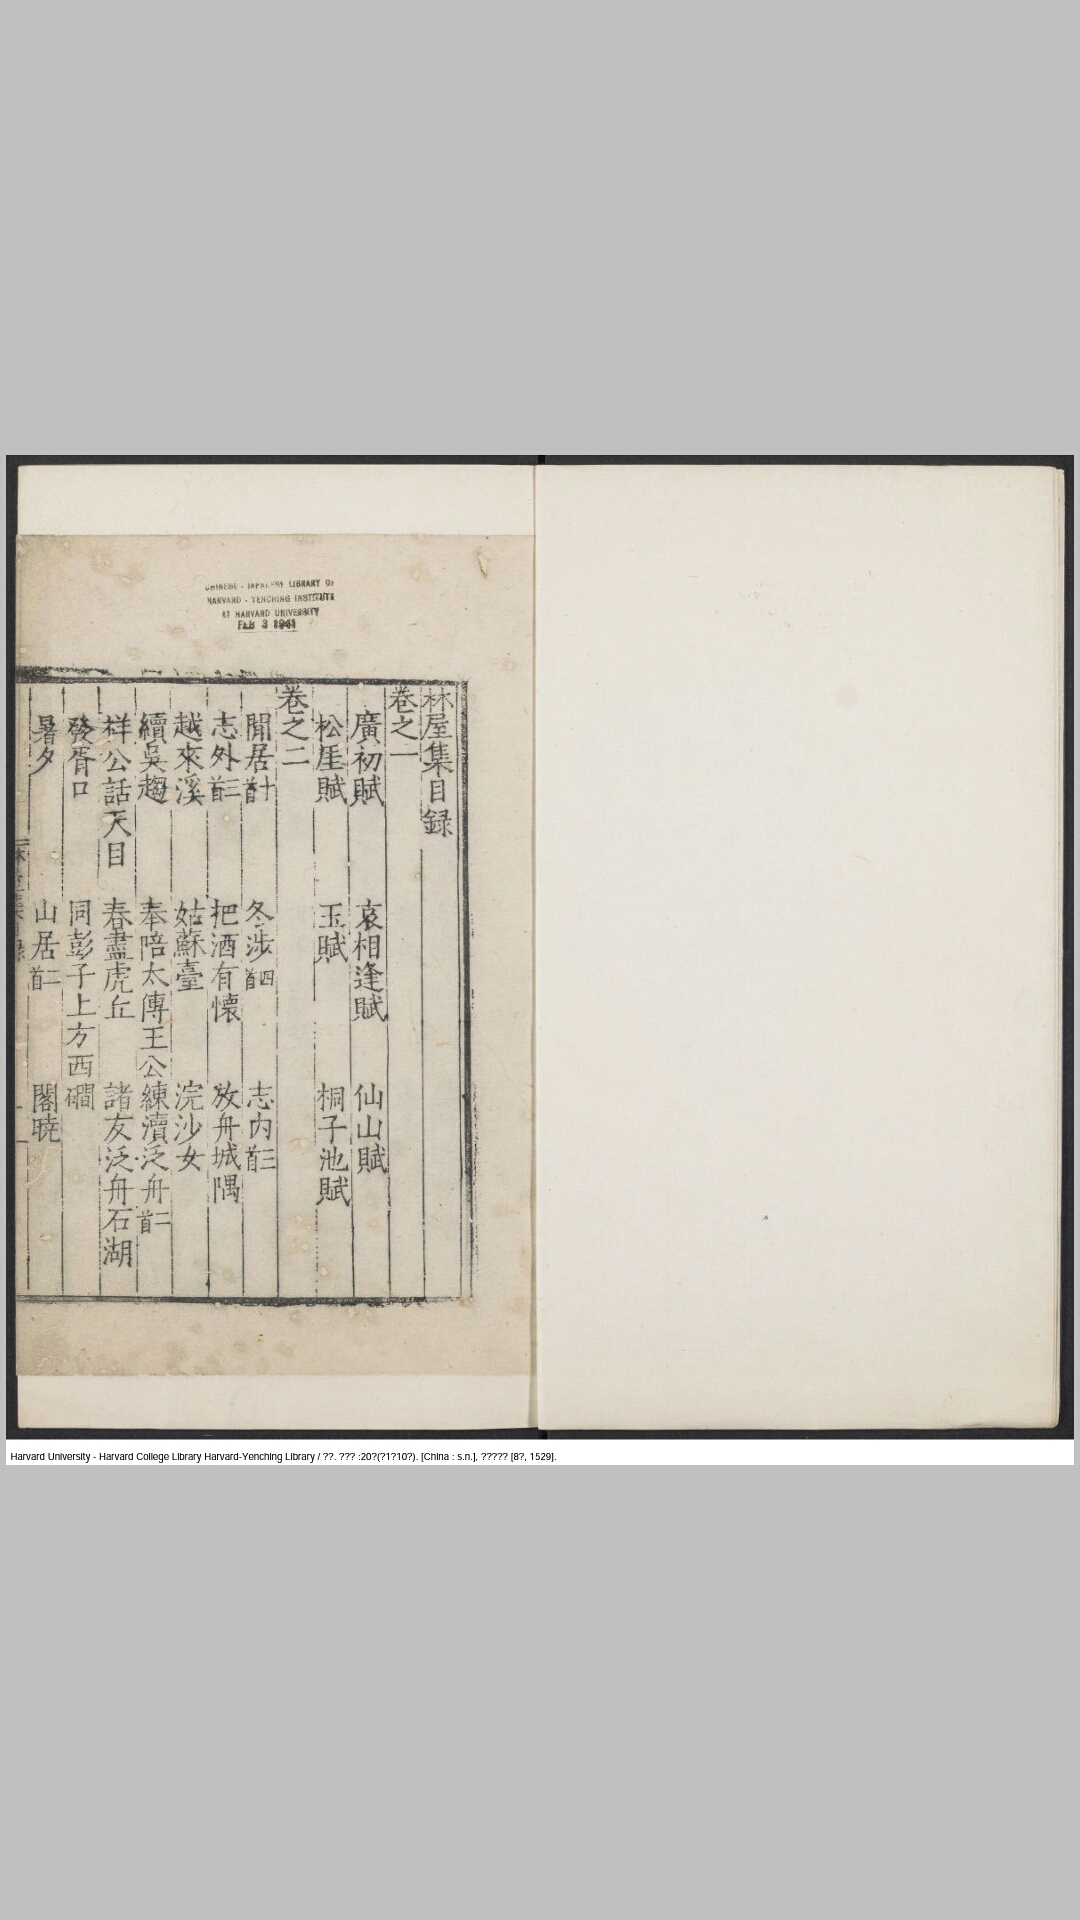 CHINESE - JAPANESE LIBRARY OF
HARVARD - YENCHING INSTITUTE
AT HARVARD UNIVERSITY
FEB 3 1941
林屋集目録
卷之一
廣初賦 哀相逢賦 仙山賦
松厓賦 玉賦 桐子池賦
卷之二
閒居十首 冬涉四首 志内三首
志外三首 把酒有懐 放舟城隅
越來溪 姑蘇臺 浣沙女
續吳趨 奉陪太傳王公練瀆泛舟二首
祥公話天目 春盡虎丘 諸友泛舟石湖
發胥口 同彭子上方西磵
暑夕 山居二首 閣曉
Harvard University - Harvard College Library Harvard-Yenching Library / ??. ??? :20?(?1?10?). [China : s.n.], ????? [8?, 1529].